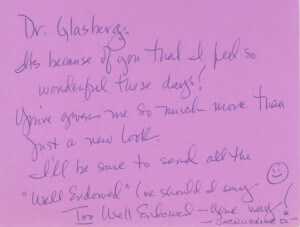 Dr. Glasberg,
Its because of you that I feel so
wonderful these days!
You've given me so much more than
just a new look.
I'll be sure to send all the
"Well Endowed" (or should I say
Too Well Endowed -- your way